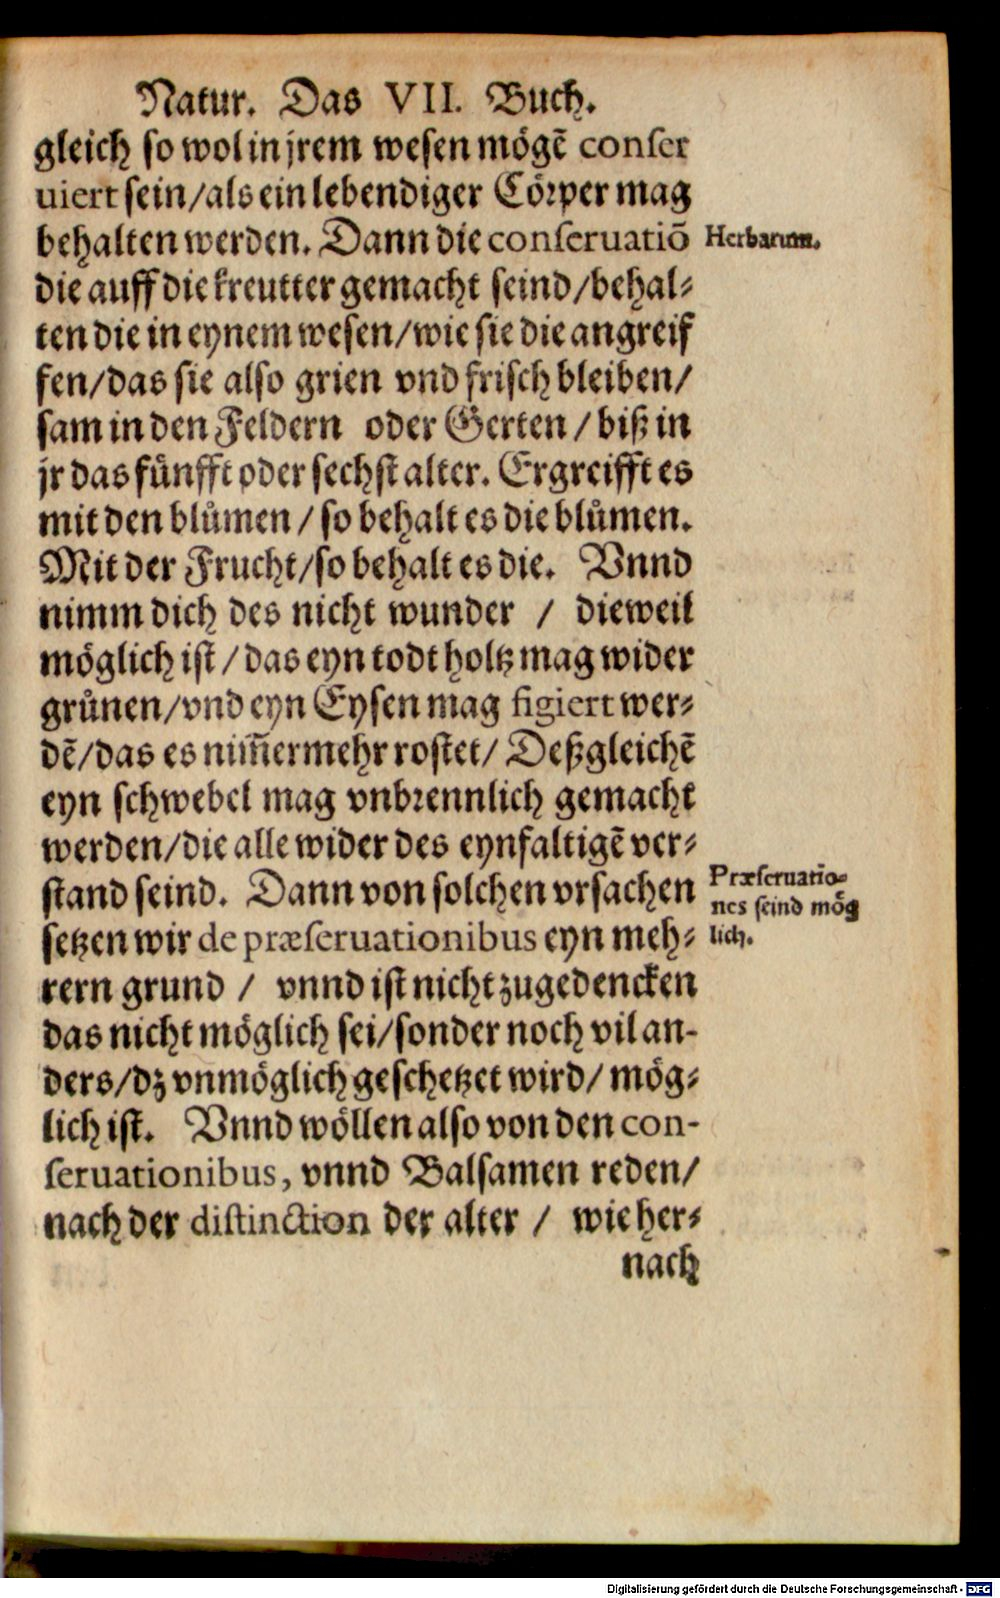 Natur. Das VII. Buch.
gleich so wol in jrem wesen mögẽ conser
uiert sein/als ein lebendiger Cörper mag
behalten werden. Dann die conseruatiõ
Herbarum.
die auff die kreutter gemacht seind/behal⸗
ten die in eynem wesen/wie sie die angreif
fen/das sie also grien vnd frisch bleiben/
sam in den Feldern oder Gerten / biß in
jr das fünfft oder sechst alter. Ergreifft es
mit den blůmen / so behalt es die blůmen.
Mit der Frucht/so behalt es die. Vnnd
nimm dich des nicht wunder / dieweil
möglich ist / das eyn todt holtz mag wider
grůnen/vnd eyn Eysen mag figiert wer⸗
dẽ/das es nim̃ermehr rostet/ Deßgleichẽ
eyn schwebel mag vnbrennlich gemacht
werden/die alle wider des eynfaltigẽ ver⸗
stand seind. Dann von solchen vrsachen
Præseruatio⸗
nes seind mög
lich.
setzen wir de præseruationibus eyn meh⸗
rern grund / vnnd ist nicht zugedencken
das nicht möglich sei/sonder noch vil an-
ders/dz vnmöglich geschetzet wird/ mög⸗
lich ist. Vnnd wöllen also von den con-
seruationibus, vnnd Balsamen reden/
nach der distinction der alter / wie her⸗
nach
Digitalisierung gefördert durch die Deutsche Forschungsgemeinschaft - DFG